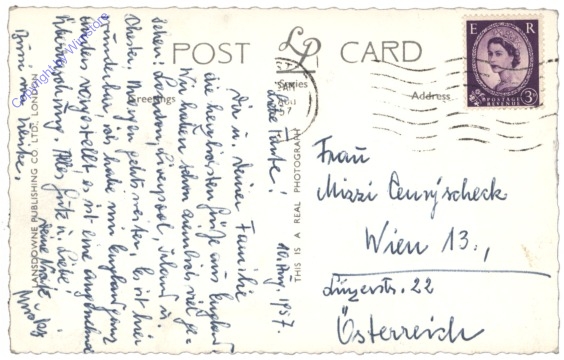 POST LP CARD
Series
Greetings
Address
E R
POSTAGE REVENUE
3D
AUG
57
10. Aug. 1957.
Liebe Tante!
Dir u. Deiner Familie
die herzlichsten Grüße aus England
Wir haben schon ziemlich viel ge-
sehen: London, Liverpool, Irland u.
Chester. Morgen geht's weiter. Es ist hier
wunderbar, ich habe mir England ganz
anders vorgestellt, es ist eine angenehme
Überraschung. Alles Gute u. Liebe
Deine
Bussi
Frau
Mizzi
Wien 13.,
Linzerstr. 22
Österreich
THIS IS A REAL PHOTOGRAPH
LANSDOWNE PUBLISHING CO LTD. LONDON
Copyright by WinStore